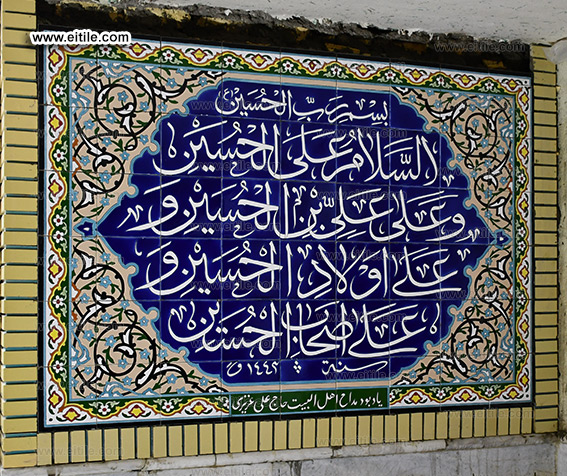 www.eitile.com
بسم ربّ الحسین
السّلام علی الحسین
وعلی علیّ بن الحسین و
علی اولاد الحسین و
علی اصحاب الحسین
سنة ۱۴۴۲ ق
یادبود مداح اهل البیت حاج علی عزیزی